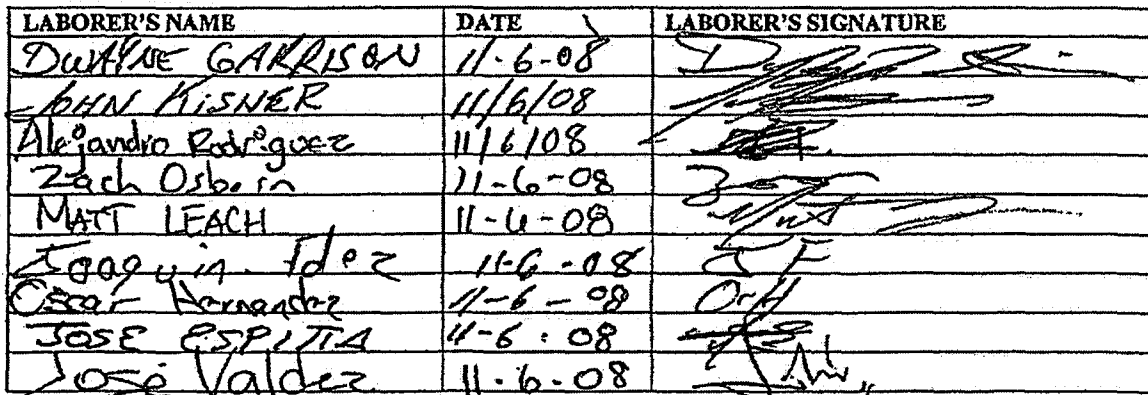 LABORER'S NAME DATE LABORER'S SIGNATURE
DWAYNE GARRISON 11-6-08
JOHN KISNER 11/6/08
Alejandro Rodriguez 11/6/08
Zach Osborn 11-6-08
MATT LEACH 11-6-08 Matt
Joaquin Fdez 11-6-08 JF
Oscar Hernandez 11-6-08 OrH
JOSE ESPITIA 11-6-08
José Valdez 11-6-08